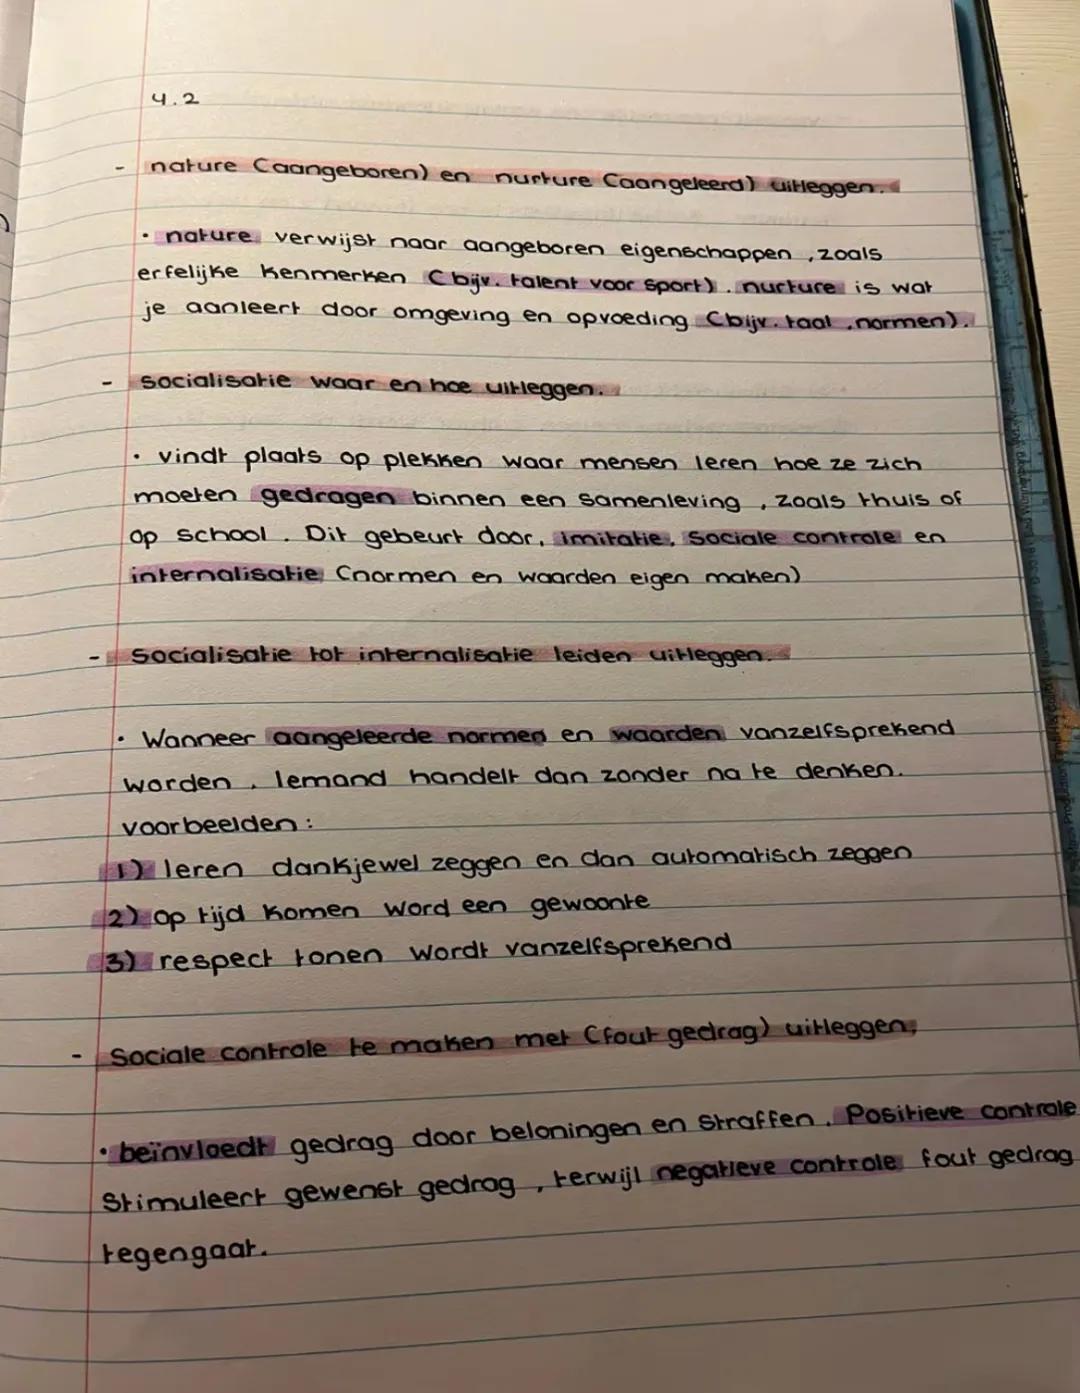 4.2
- nature (aangeboren) en nurture (aangeleerd) uitleggen.
• nature verwijst naar aangeboren eigenschappen, zoals
erfelijke kenmerken (bijv. talent voor sport). nurture is wat
je aanleert door omgeving en opvoeding (bijv. taal, normen).
- socialisatie waar en hoe uitleggen.
• vindt plaats op plekken waar mensen leren hoe ze zich
moeten gedragen binnen een samenleving, zoals thuis of
op school. Dit gebeurt door, imitatie, sociale controle en
internalisatie (normen en waarden eigen maken)
- Socialisatie tot internalisatie leiden uitleggen.
• Wanneer aangeleerde normen en waarden vanzelfsprekend
worden. Iemand handelt dan zonder na te denken.
voorbeelden:
1) leren dankjewel zeggen en dan automatisch zeggen
2) op tijd komen word een gewoonte
3) respect tonen wordt vanzelfsprekend
- Sociale controle te maken met (fout gedrag) uitleggen,
• beïnvloedt gedrag door beloningen en straffen. Positieve controle
Stimuleert gewenst gedrag, terwijl negatieve controle fout gedrag
tegengaat.